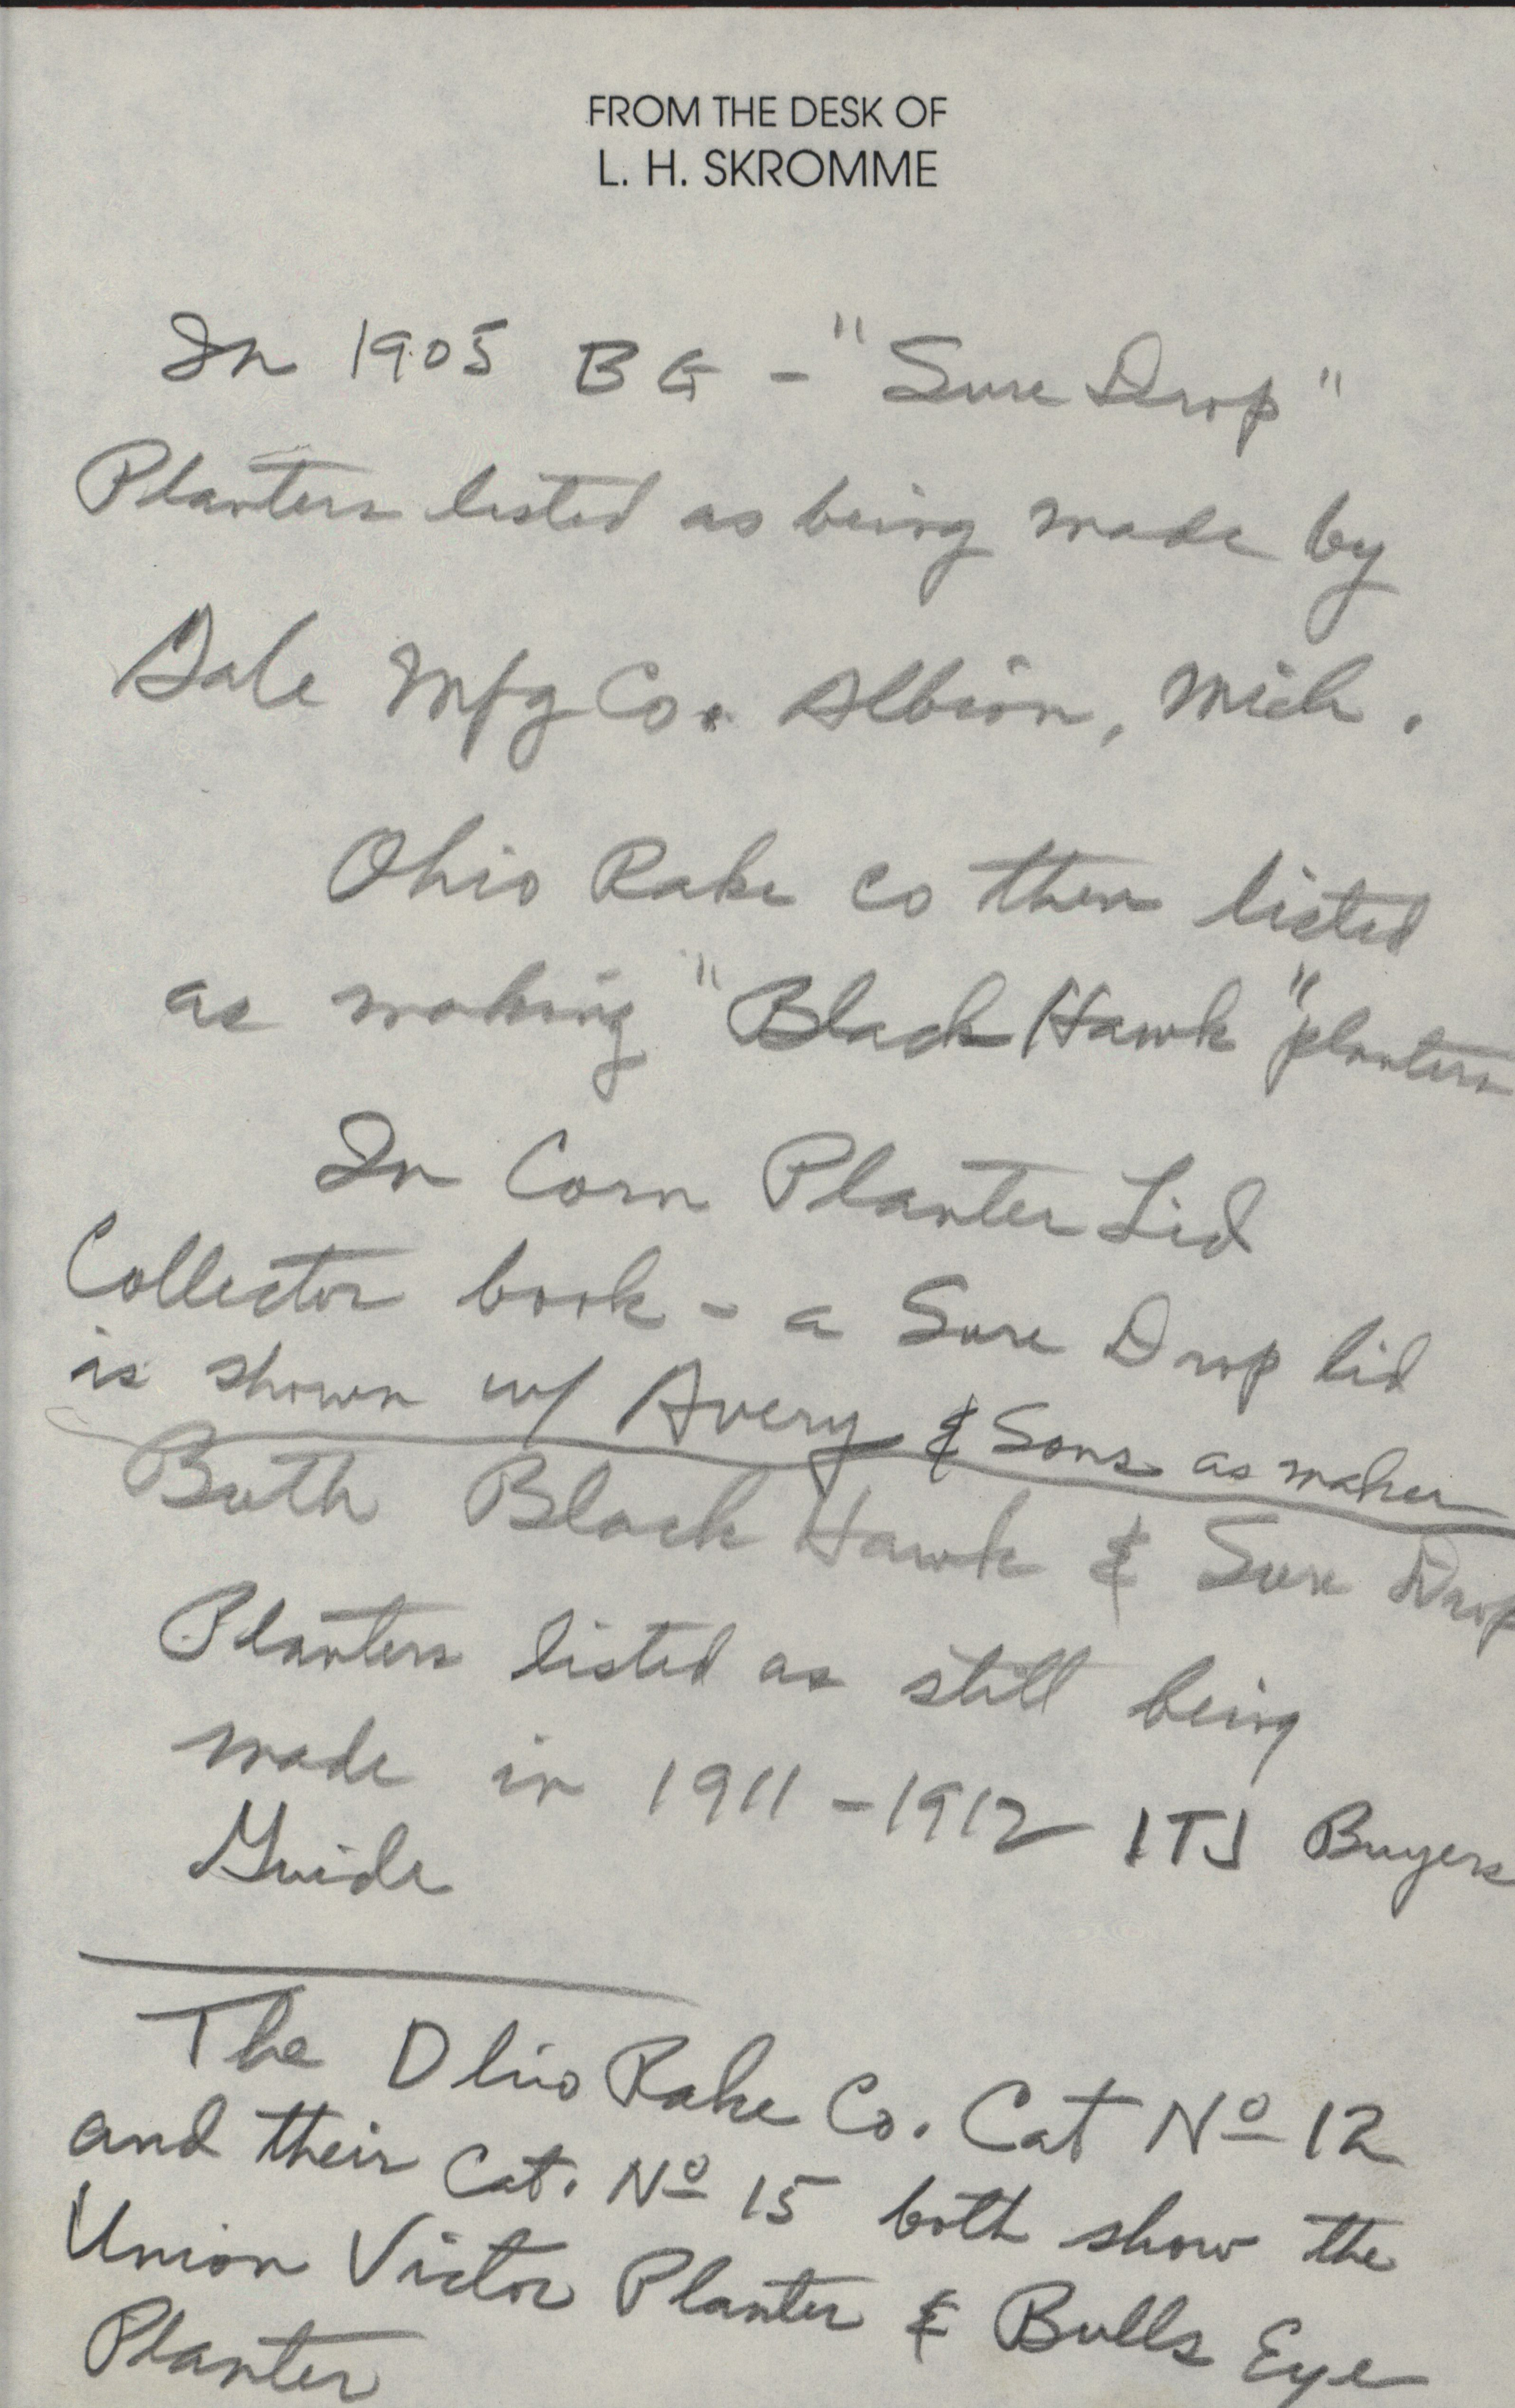 FROM THE DESK OF
L. H. SKROMME
In 1905 BG - "Sure Drop"
Planters listed as being made by
Gale Mfg Co. Albion, Mich.
Ohio Rake Co then listed
as making "Black Hawk" planters
In Corn Planter Lid
Collector book - a Sure Drop lid
is shown w/ Avery & Sons as maker
Both Black Hawk & Sure Drop
Planters listed as still being
made in 1911-1912 ITJ Buyers
Guide
The Ohio Rake Co. Cat Nº 12
and their Cat. Nº 15 both show the
Union Victor Planter & Bulls Eye
Planter